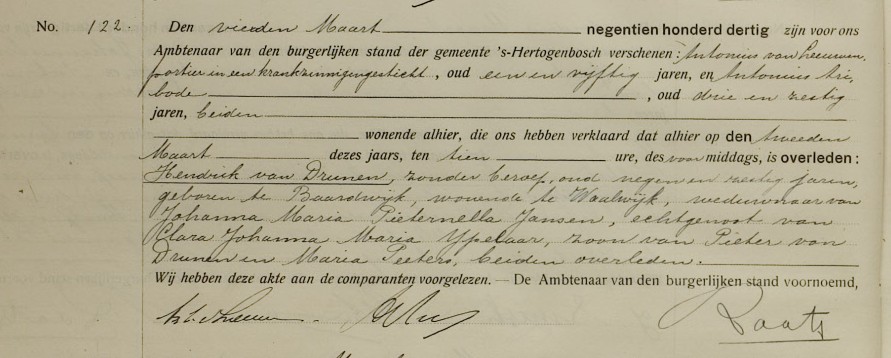 No. 122. Den vierden Maart negentien honderd dertig zijn voor ons
Ambtenaar van den burgerlijken stand der gemeente 's-Hertogenbosch verschenen: Antonius van Leeuwen,
portier in een krankzinnigengesticht, oud een en vijftig jaren, en Antonius
bode, oud drie en zestig
jaren, beiden
wonende alhier, die ons hebben verklaard dat alhier op den tweeden
Maart dezes jaars, ten tien ure, des voor middags, is overleden:
Hendrik van Drunen, zonder beroep, oud negen en zestig jaren,
geboren te Baardwijk, wonende te Waalwijk, weduwnaar van
Johanna Maria Pieternella Jansen, echtgenoot van
Clara Johanna Maria Ypelaar, zoon van Pieter van
Drunen en Maria Peeters, beiden overleden.
Wij hebben deze akte aan de comparanten voorgelezen. — De Ambtenaar van den burgerlijken stand voornoemd,